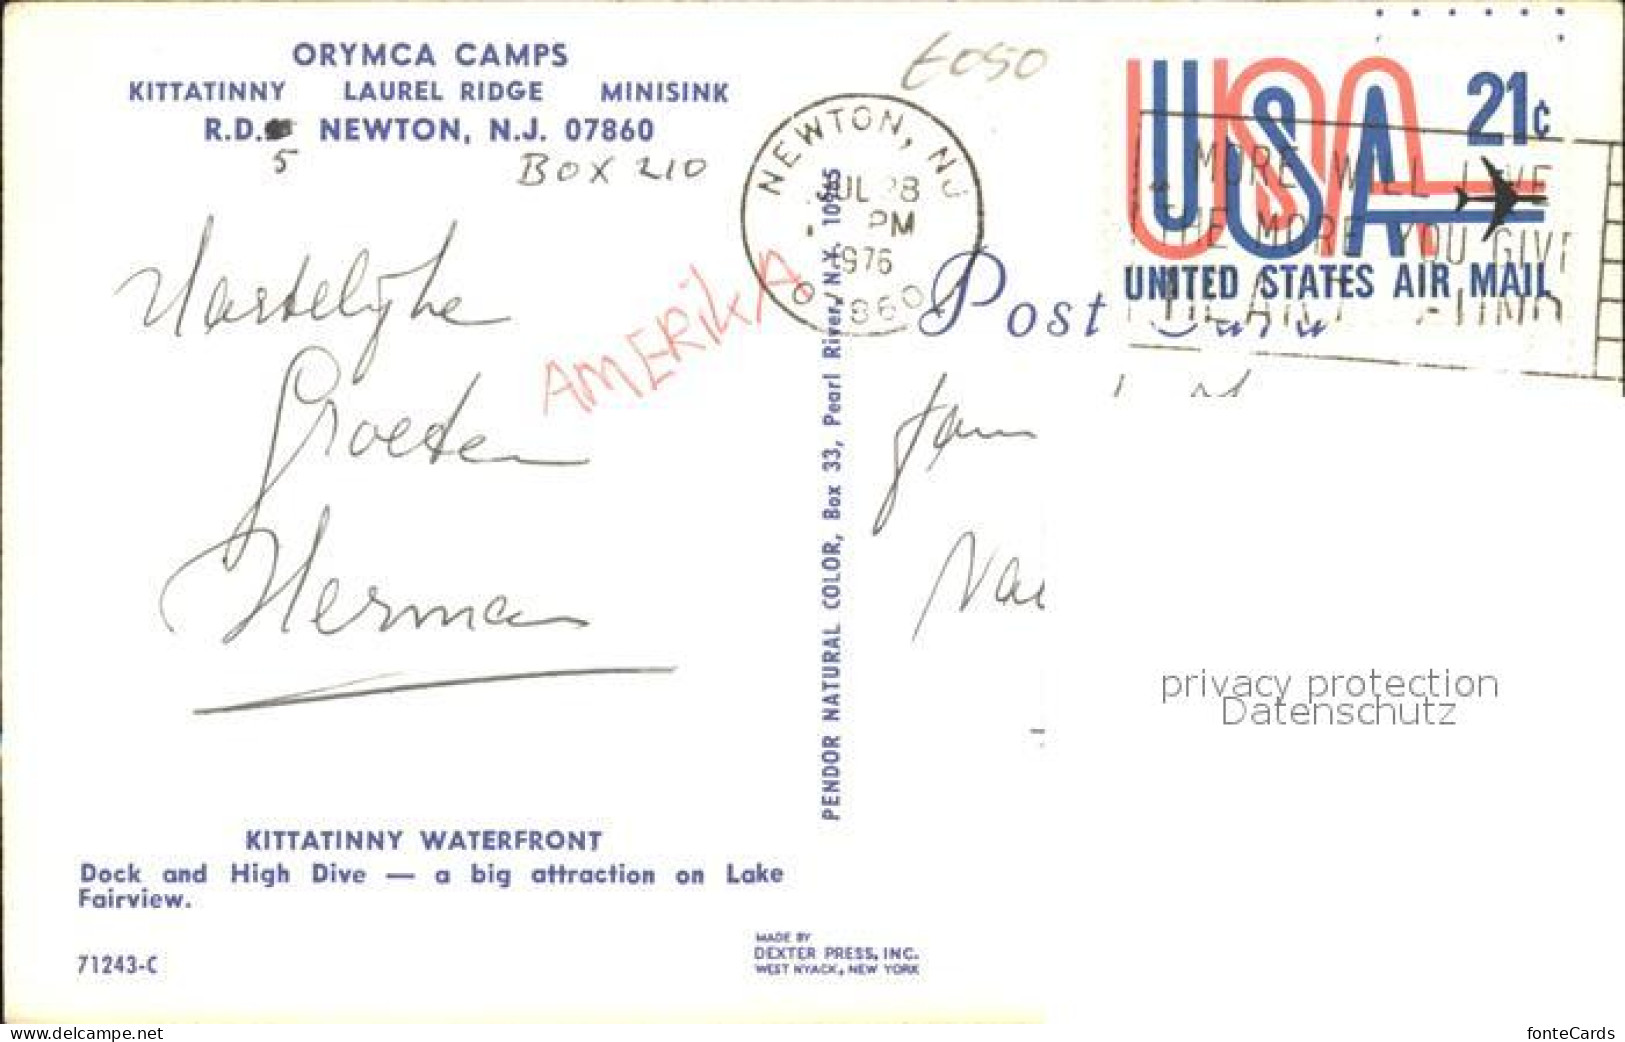 ORYMCA CAMPS
KITTATINNY LAUREL RIDGE MINISINK
R.D. NEWTON, N.J. 07860
5 BOX 210
Hartelyke
Groeten
Herman
AMERikA
KITTATINNY WATERFRONT
Dock and High Dive — a big attraction on Lake
Fairview.
71243-C
PENDOR NATURAL COLOR, Box 33, Pearl River, N.Y. 10965
MADE BY
DEXTER PRESS, INC.
WEST NYACK, NEW YORK
NEWTON, NJ
PM
Post
USA 21c
UNITED STATES AIR MAIL
MORE WILL LIVE
THE MORE YOU GIVE
privacy protection
Datenschutz
www.delcampe.net
fonteCards